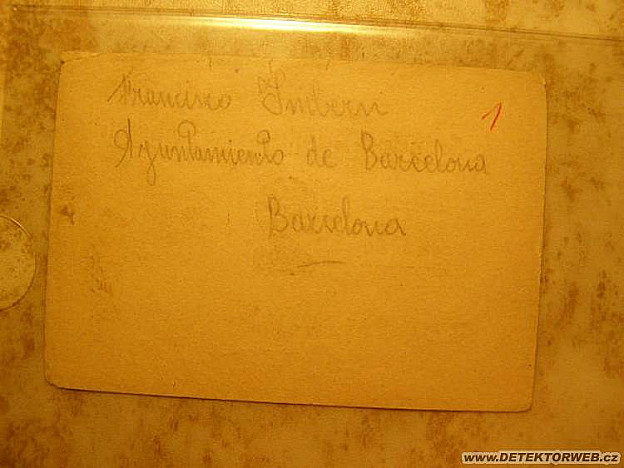 Francisco Imbern
1
Ayuntamiento de Barcelona
Barcelona
www.DETEKTORWEB.cz